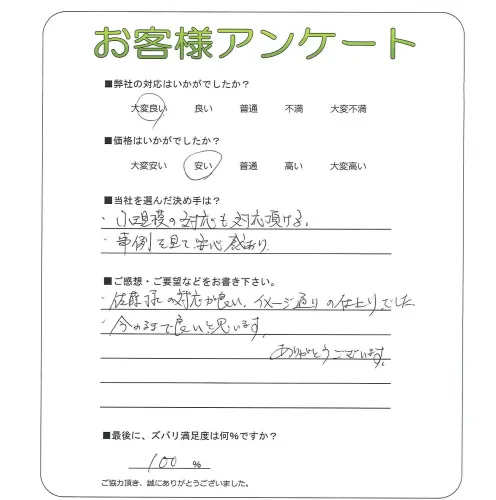 お客様アンケート
■弊社の対応はいかがでしたか？
大変良い 良い 普通 不満 大変不満
■価格はいかがでしたか？
大変安い 安い 普通 高い 大変高い
■当社を選んだ決め手は？
・小規模の対応も対応頂ける。
・事例を見て安心感あり
■ご感想・ご要望などをお書き下さい。
・佐藤様の対応が良い。イメージ通りの仕上りでした
・今のままで良いと思います。
ありがとうございます。
■最後に、ズバリ満足度は何%ですか？
100 %
ご協力頂き、誠にありがとうございました。